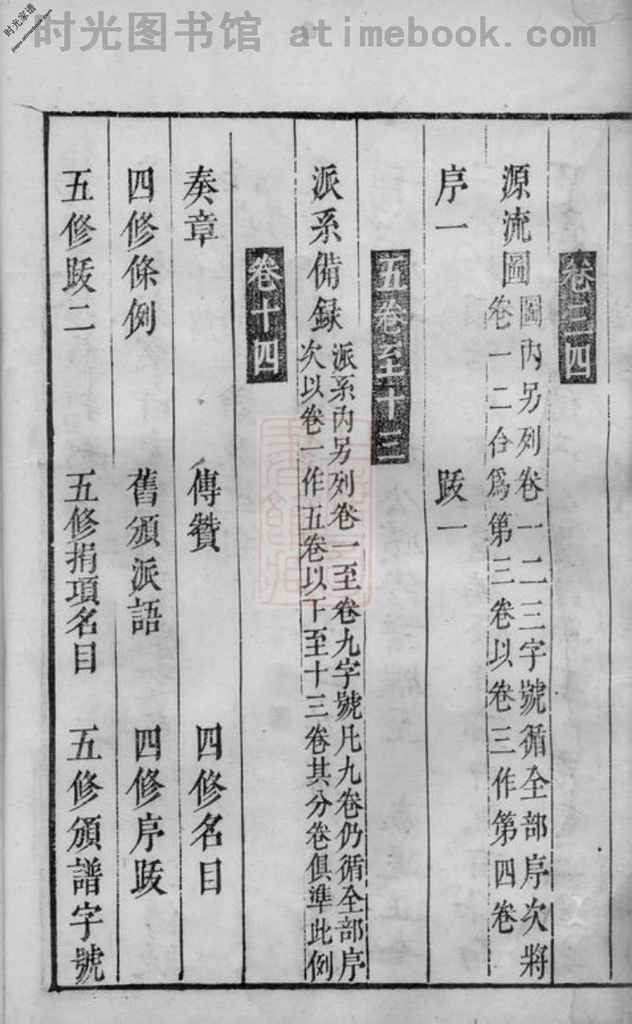 时光图书馆 atimebook.com
时光家谱
卷三四
源流圖 圖内另列卷一二三字號循全部序次將
卷一二合爲第三卷以卷三作第四卷
序一 跋一
五卷至十三
派系備録 派系内另列卷一至卷九字號凡九卷仍循全部序
次以卷一作五卷以下至十三卷其分卷俱準此例
卷十四
奏章 傳贊 四修名目
四修條例 舊頒派語 四修序跋
五修跋二 五修捐項名目 五修頒譜字號